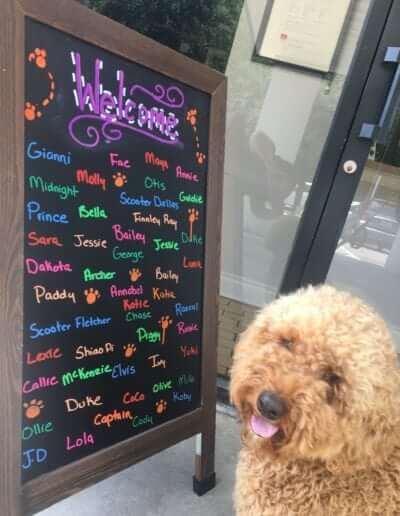 Welcome
Gianni Fae Maya Annie
Midnight Molly Otis Goldie
Prince Bella Scooter Dallas
Finnley Ray
Sara Jessie Bailey Jessie Duke
George Luna
Dakota Archer Bailey
Paddy Annabel Katie
Katie
Scooter Fletcher Chase Rascal
Piggy Rosie
Lexie Shiao Pi Ivy Yuki
Callie McKenzie Elvis
Duke CoCo Olive Milo
Ollie Captain Cody Koby
J.D Lola